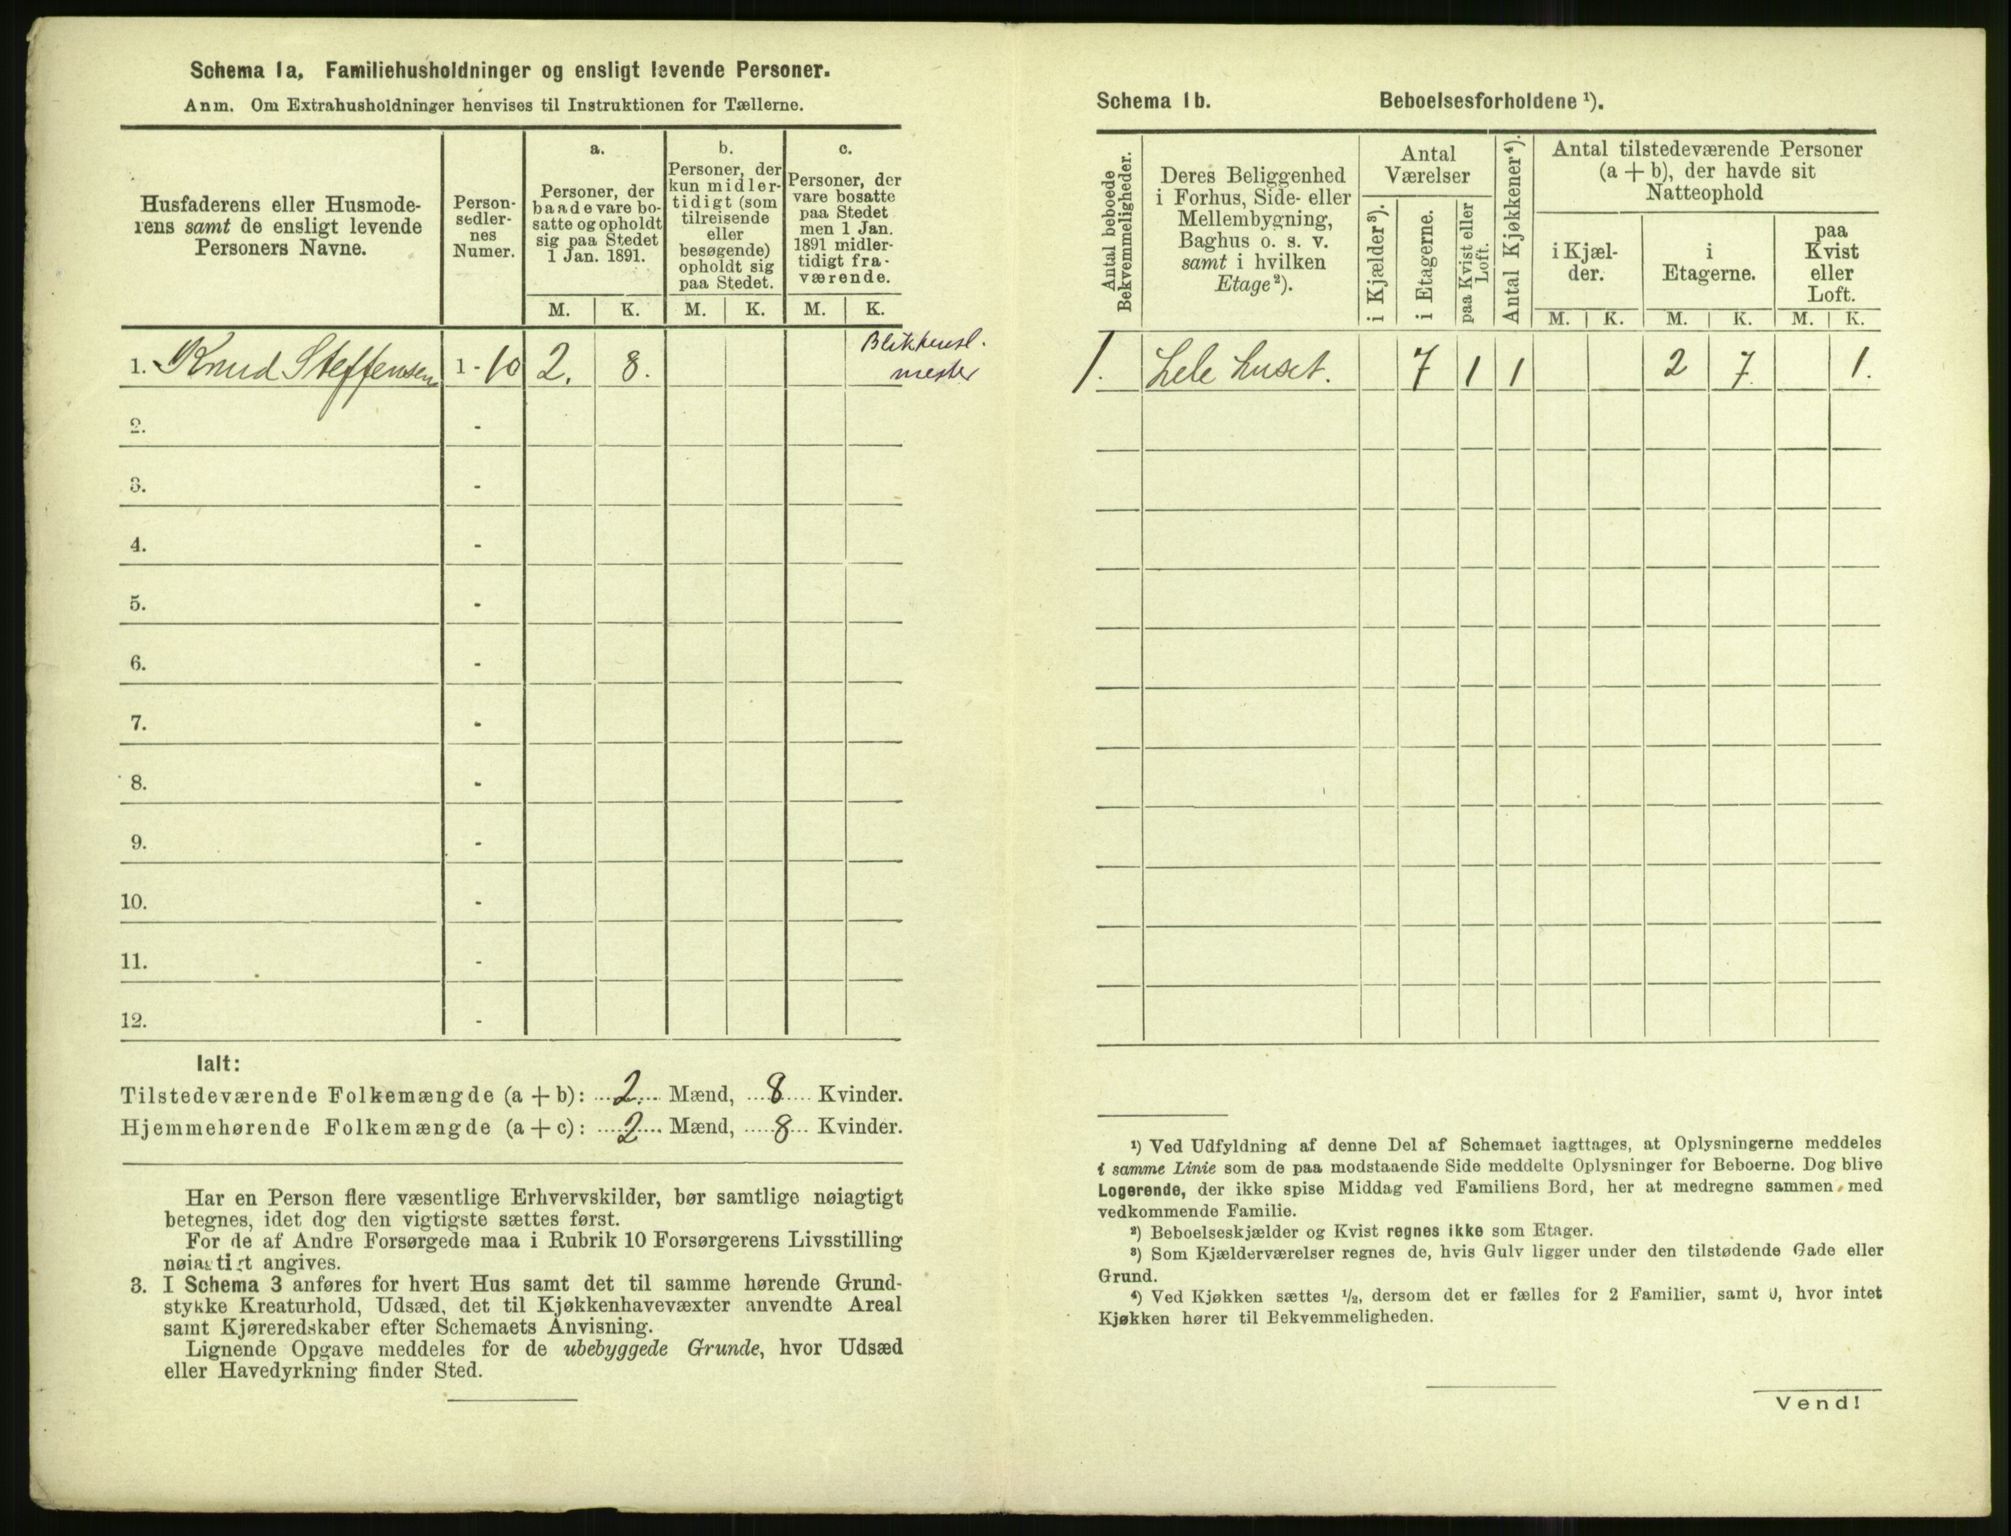 Schema 1a, Familiehusholdninger og ensligt levende Personer.
Anm. Om Extrahusholdninger henvises til Instruktionen for Tællerne.
Husfaderens eller Husmode-
rens samt de ensligt levende
Personers Navne.
Person-
sedler-
nes
Numer.
a.
Personer, der
baade vare bo-
satte og opholdt
sig paa Stedet
1 Jan. 1891.
b.
Personer, der
kun midler-
tidigt (som
tilreisende
eller
besøgende)
opholdt sig
paa Stedet.
c.
Personer, der
vare bosatte
paa Stedet
men 1 Jan.
1891 midler-
tidigt fra-
værende.
M. K. M. K. M. K.
1. Knud Steffensen 1 - 10 2. 8. Blikkensl.
mester
2. -
3. -
4. -
5. -
6. -
7. -
8. -
9. -
10. -
11. -
12. -
Ialt:
Tilstedeværende Folkemængde (a + b): 2. Mænd, 8 Kvinder.
Hjemmehørende Folkemængde (a + c): 2 Mænd, 8 Kvinder.
Har en Person flere væsentlige Erhvervskilder, bør samtlige nøiagtigt
betegnes, idet dog den vigtigste sættes først.
For de af Andre Forsørgede maa i Rubrik 10 Forsørgerens Livsstilling
nøiagtigt angives.
3. I Schema 3 anføres for hvert Hus samt det til samme hørende Grund-
stykke Kreaturhold, Udsæd, det til Kjøkkenhavevæxter anvendte Areal
samt Kjøreredskaber efter Schemaets Anvisning.
Lignende Opgave meddeles for de ubebyggede Grunde, hvor Udsæd
eller Havedyrkning finder Sted.
Schema 1b. Beboelsesforholdene ¹).
Antal beboede
Bekvemmeligheder.
Deres Beliggenhed
i Forhus, Side- eller
Mellembygning,
Baghus o. s. v.
samt i hvilken
Etage²).
Antal
Værelser
i Kjælder³).
i Etagerne.
paa Kvist eller
Loft.
Antal Kjøkkener⁴).
Antal tilstedeværende Personer
(a + b), der havde sit
Natteophold
i Kjæl-
der.
i
Etagerne.
paa
Kvist
eller
Loft.
M. K. M. K. M. K.
1. Hele huset. 7 1 1 2 7. 1.
¹) Ved Udfyldning af denne Del af Schemaet iagttages, at Oplysningerne meddeles
i samme Linie som de paa modstaaende Side meddelte Oplysninger for Beboerne. Dog blive
Logerende, der ikke spise Middag ved Familiens Bord, her at medregne sammen med
vedkommende Familie.
²) Beboelseskjælder og Kvist regnes ikke som Etager.
³) Som Kjælderværelser regnes de, hvis Gulv ligger under den tilstødende Gade eller
Grund.
⁴) Ved Kjøkken sættes ½, dersom det er fælles for 2 Familier, samt 0, hvor intet
Kjøkken hører til Bekvemmeligheden.
Vend!